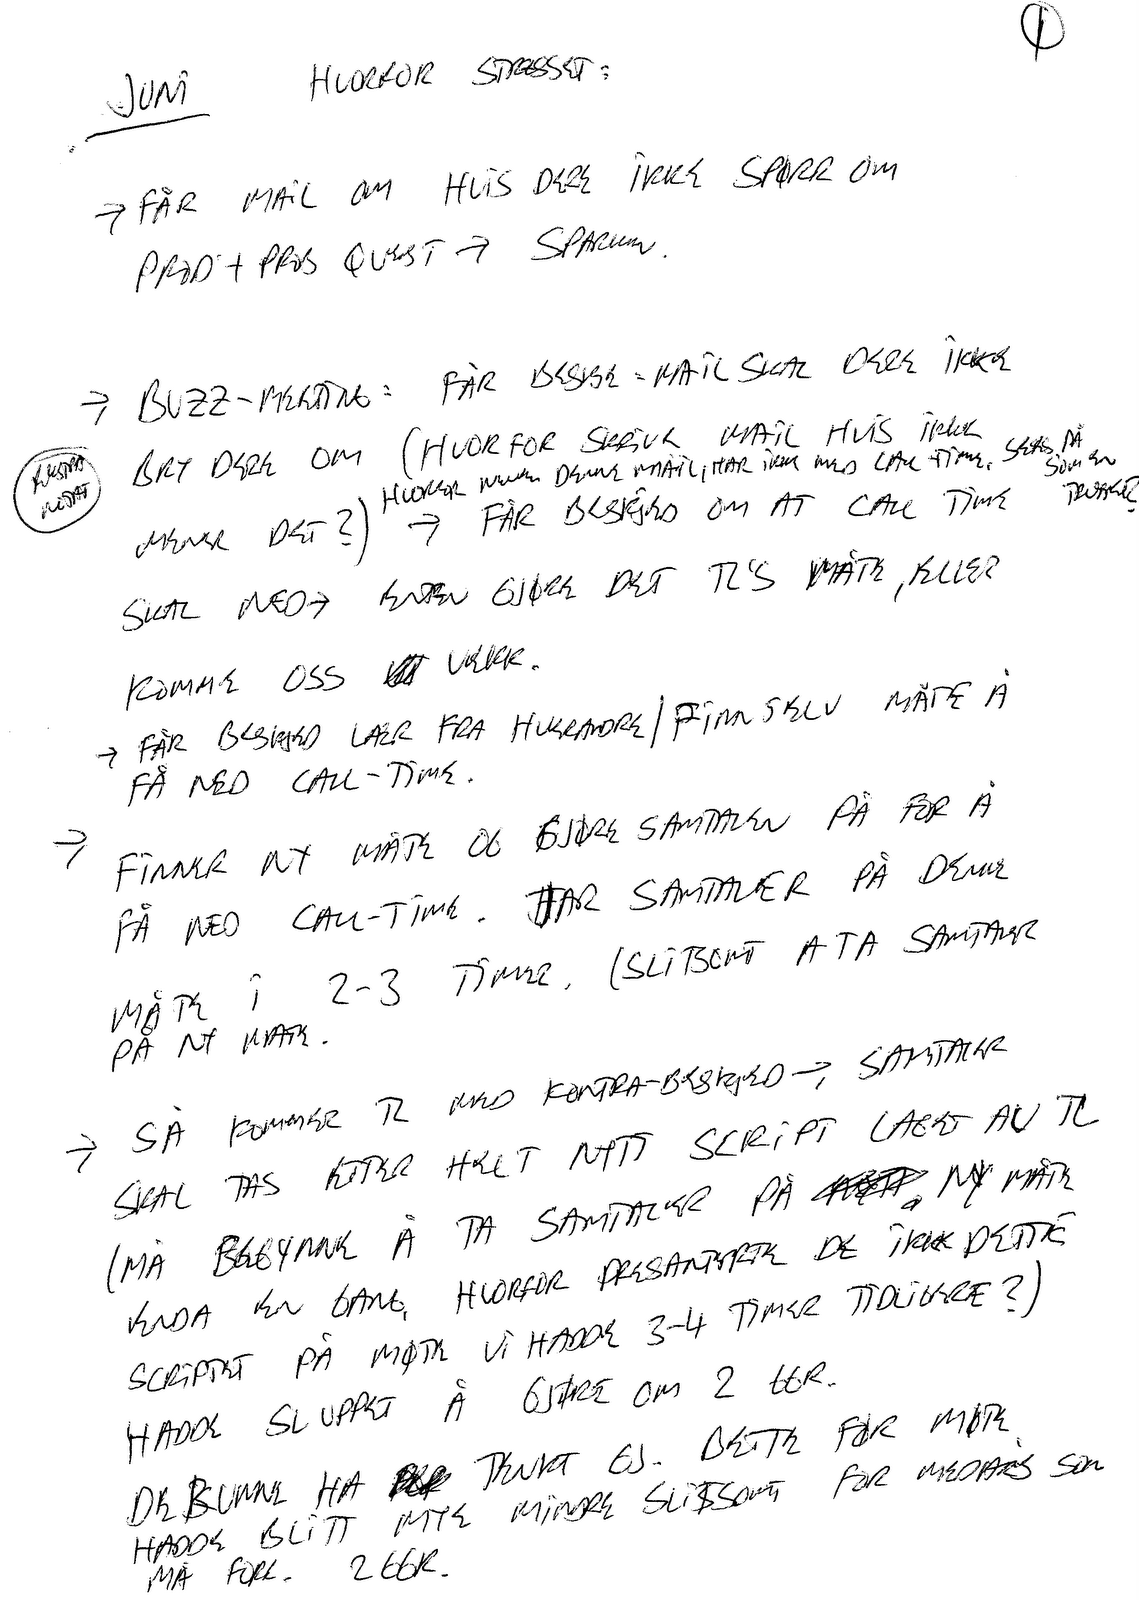 ①
JUNI HVORFOR STRESSET:
→ FÅR MAIL OM HVIS DERE IKKE SPØRR OM
PROD + PROB QUEST →
→ BUZZ-MEETING: FÅR BESKJE-MAIL SKAL DERE IKKE
BRY DERE OM (HVORFOR SKRIVE MAIL HVIS IKKE
HVORFOR DENNE MAIL, HAR IKKE MED CALL TIME. SEES PÅ SOM EN
MENER DET?) → FÅR BESKJED OM AT CALL TIME
SKAL NED → ENTEN GJØRE DET TL'S MÅTE, ELLER
KOMME OSS VEKK.
→ FÅR BESKJED LÆR FRA HVERANDRE/FINN SELV MÅTE Å
FÅ NED CALL-TIME.
→ FINNER NY MÅTE OG GJØRE SAMTALEN PÅ FOR Å
FÅ NED CALL-TIME. HAR SAMTALER PÅ DENNE
MÅTE I 2-3 TIMER. (SLITSOMT A TA SAMTALER
PÅ NY MÅTE.
→ SÅ KOMMER TL MED KONTRA-BESKJED →, SAMTALER
SKAL TAS ETTER HELT NYTT SCRIPT LAGET AV TL
(MÅ BEGYNNE Å TA SAMTALER PÅ NY MÅTE
ENDA EN GANG, HVORFOR PRESANTERTE DE IKKE DETTE
SCRIPTET PÅ MØTE VI HADDE 3-4 TIMER TIDLIGERE?)
HADDE SLUPPET Å GJØRE OM 2 GGR.
DE BURDE HA TENKT GJ. DETTE FØR MØTE
HADDE BLITT MYE MINDRE SLITSOMT FOR MEDARB SOM
MÅ FORK. 2 GGR.